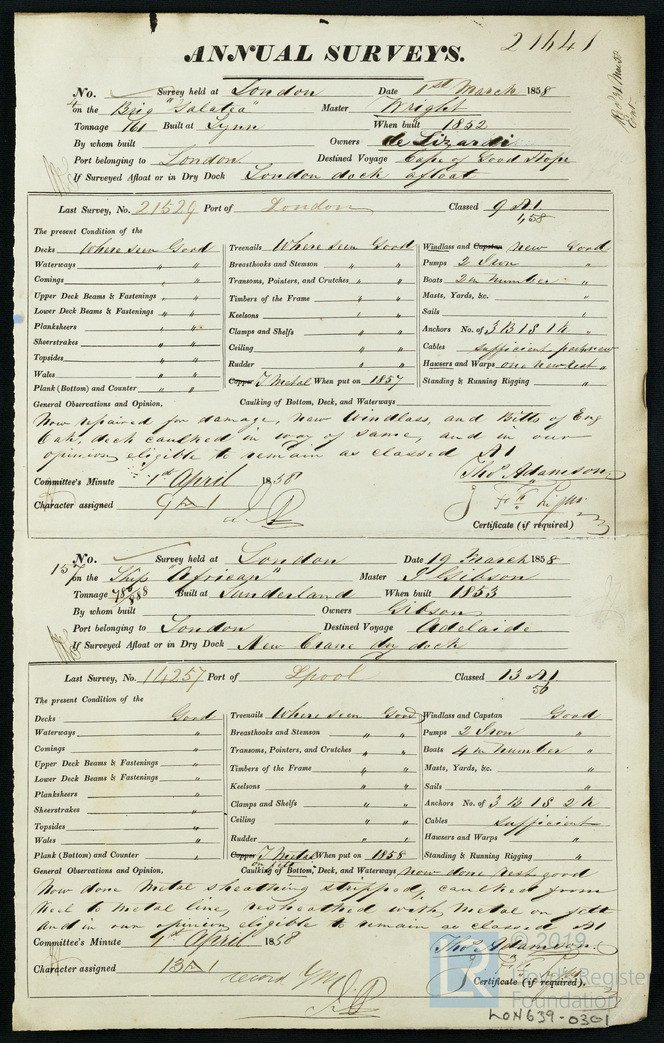 21641
ANNUAL SURVEYS.
No. Survey held at London Date 1st March 1858
on the Brig "Galatea" Master Wright
Tonnage 161 Built at Lynn When built 1852
By whom built Owners de Lizardi
Port belonging to London Destined Voyage Cape of Good Hope
If Surveyed Afloat or in Dry Dock London dock afloat
Last Survey, No. 21529 Port of London Classed 9 A1
4,58
The present Condition of the
Decks Where seen Good Treenails Where seen Good Windlass and Capstan new Good
Waterways " " Breasthooks and Stemson " " Pumps 2 Iron "
Comings " " Transoms, Pointers, and Crutches " " Boats 2 in number "
Upper Deck Beams & Fastenings " " Timbers of the Frame " " Masts, Yards, &c. "
Lower Deck Beams & Fastenings " " Keelsons " " Sails "
Planksheers " " Clamps and Shelfs " " Anchors No. of 3 B 1 S 1 k "
Sheerstrakes " " Ceiling " " Cables sufficient part new
Topsides " " Rudder " " Hawsers and Warps one new rest "
Wales " " Copper Y Metal When put on 1857 Standing & Running Rigging "
Plank (Bottom) and Counter " "
General Observations and Opinion, Caulking of Bottom, Deck, and Waterways
Now repaired for damage, new Windlass, and Bitts of Eng
Oak, deck caulked in way of same, and in our
opinion eligible to remain as classed A1
Thos Adamson
Committee's Minute 1st April 1858
Character assigned 9 A 1
Certificate (if required)
No. Survey held at London Date 19 March 1858
157 on the Ship "African" Master J Gibson
Tonnage 788 Built at Sunderland When built 1853
By whom built Owners Gibson
Port belonging to London Destined Voyage Adelaide
If Surveyed Afloat or in Dry Dock New Crane dry dock
Last Survey, No. 14257 Port of Lpool Classed 13 A1
56
The present Condition of the
Decks Good Treenails Where seen Good Windlass and Capstan Good
Waterways " Breasthooks and Stemson " " Pumps 2 Iron "
Comings " Transoms, Pointers, and Crutches " " Boats 4 in number "
Upper Deck Beams & Fastenings " Timbers of the Frame " " Masts, Yards, &c. "
Lower Deck Beams & Fastenings " Keelsons " " Sails "
Planksheers " Clamps and Shelfs " " Anchors No. of 3 B 1 S 2 k
Sheerstrakes " Ceiling " " Cables Sufficient
Topsides " Rudder " " Hawsers and Warps "
Wales " Copper Y Metal on felt When put on 1858 Standing & Running Rigging "
Plank (Bottom) and Counter "
General Observations and Opinion, Caulking of Bottom, Deck, and Waterways now done rest good
Now done Metal sheathing stripped, caulked from
keel to metal line, resheathed with Metal on felt
and in our opinion eligible to remain as classed A1
Committee's Minute 1st April 1858 Thos Adamson
Character assigned 13 A 1
record YM
Certificate (if required).
LR © 2019
Lloyd's Register
Foundation
LON639-0301